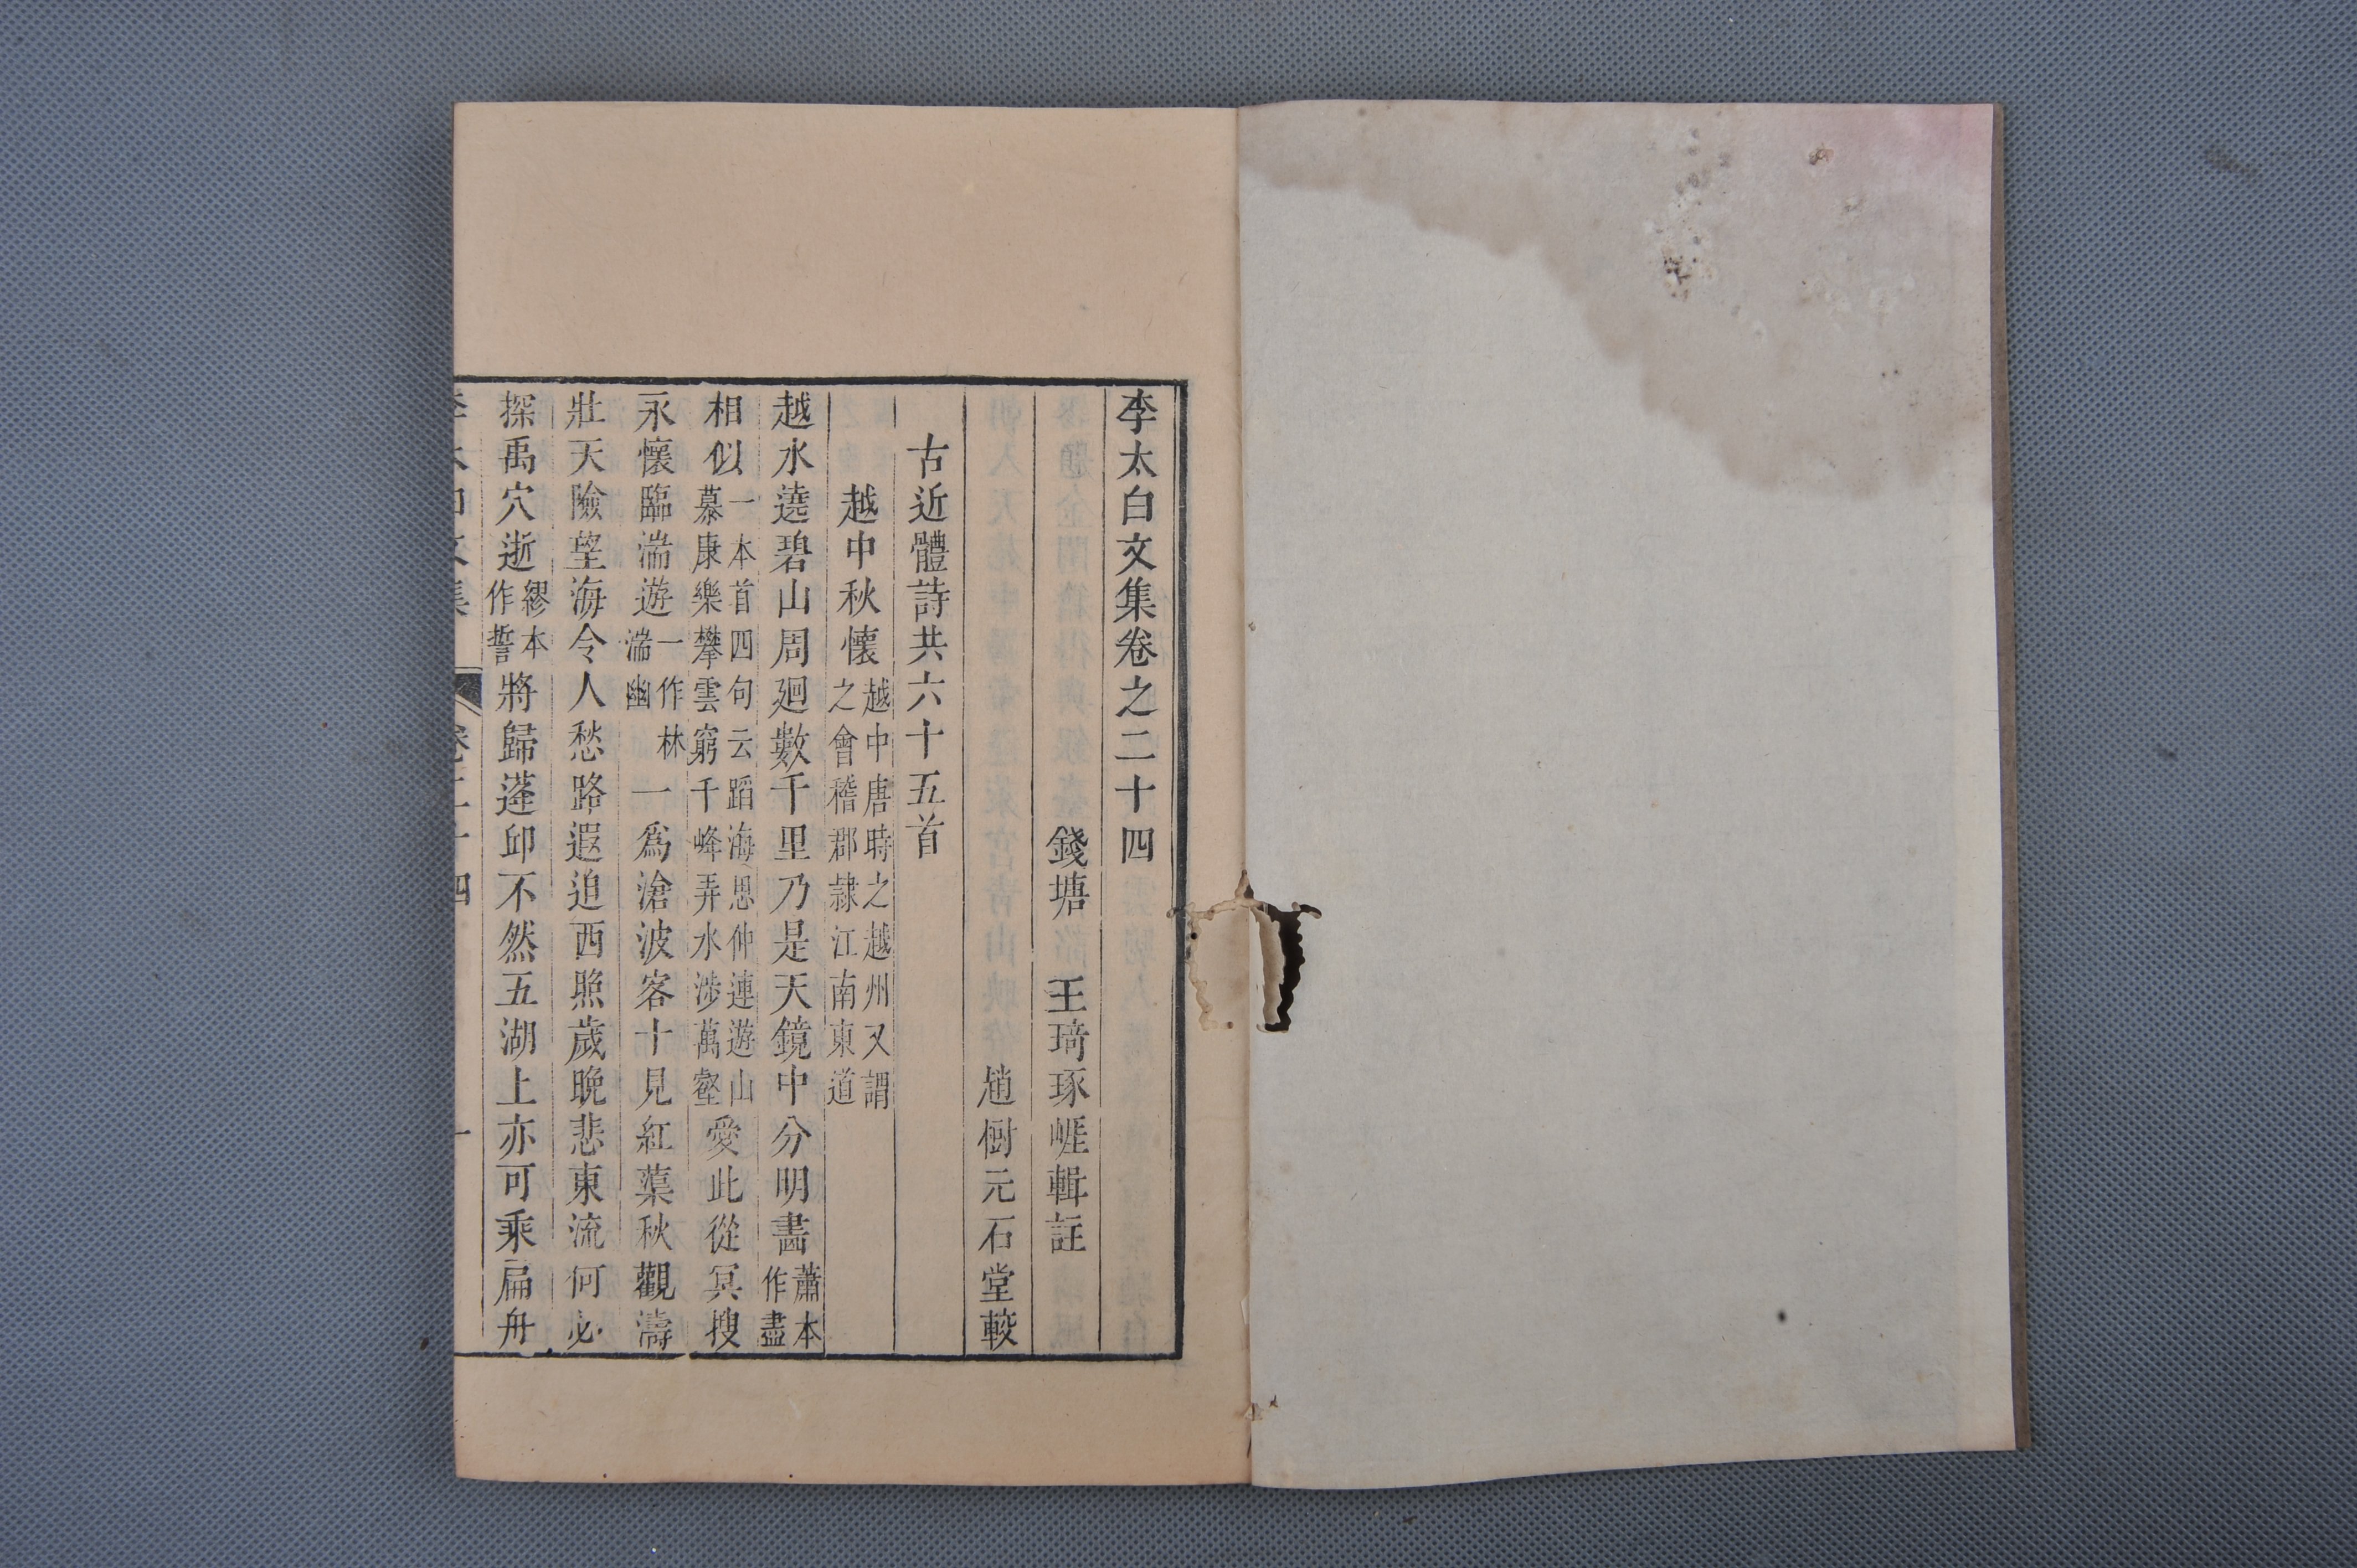 李太白文集卷之二十四
錢塘 王琦琢崕輯註
趙樹元石堂較
古近體詩共六十五首
越中秋懷越中唐時之越州又謂之會稽郡隷江南東道
越水遶碧山周廻數千里乃是天鏡中分明畵蕭本作盡
相似一本首四句云蹈海思仲連遊山慕康樂攀雲窮千峰弄水涉萬壑愛此從冥搜
永懷臨湍遊一作林湍幽一爲滄波客十見紅蕖秋觀濤
壯天險望海令人愁路遐迫西照歲晚悲東流何必
探禹穴逝繆本作誓將歸蓬邱不然五湖上亦可乘扁舟
李太白文集 卷二十四 一